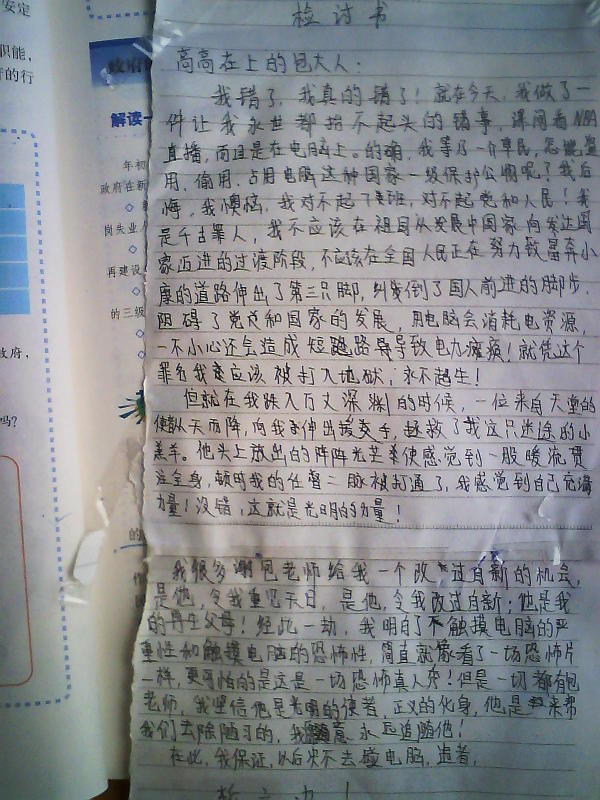 安定
职能，
府的行
政府
解读一
年初
政府在新
岗失业人
再建设
的三级
政府，
吗？
检讨书
高高在上的包大人：
我错了，我真的错了！就在今天，我做了一
件让我永世都抬不起头的错事，课间看NBA
直播，而且是在电脑上。的确，我等乃一介草民，怎能盗
用、偷用、占用电脑这种国家一级保护公物呢？我后
悔，我懊恼，我对不起了班，对不起党和人民！我
是千古罪人，我不应该在祖国从发展中国家向发达国
家迈进的过渡阶段，不应该在全国人民正在努力致富奔小
康的道路伸出了第三只脚，绊倒了国人前进的脚步，
阻碍了党和国家的发展，用电脑会消耗电资源，
一不小心还会造成短路导致电力瘫痪！就凭这个
罪名我应该被打入地狱，永不超生！
但就在我跌入万丈深渊的时候，一位来自天堂的
使者从天而降，向我伸出援手，拯救了我这只迷途的小
羔羊。他头上放出的阵阵光芒使感觉到一股暖流贯
注全身，顿时我的任督二脉被打通了，我感觉到自己充满
力量！没错，这就是光明的力量！
我很多谢包老师给我一个改过自新的机会，
是他，令我重见天日，是他，令我改过自新；他是我
的再生父母！经此一劫，我明白了不触摸电脑的严
重性和触摸电脑的恐怖性，简直就像看了一场恐怖片
一样，更可怕的是这是一场恐怖真人秀！但是一切都有包
老师，我坚信他是光明的使者，正义的化身，他是来帮
我们去除陋习的，我愿意永远追随他！
在此，我保证，以后决不去碰电脑，违者，